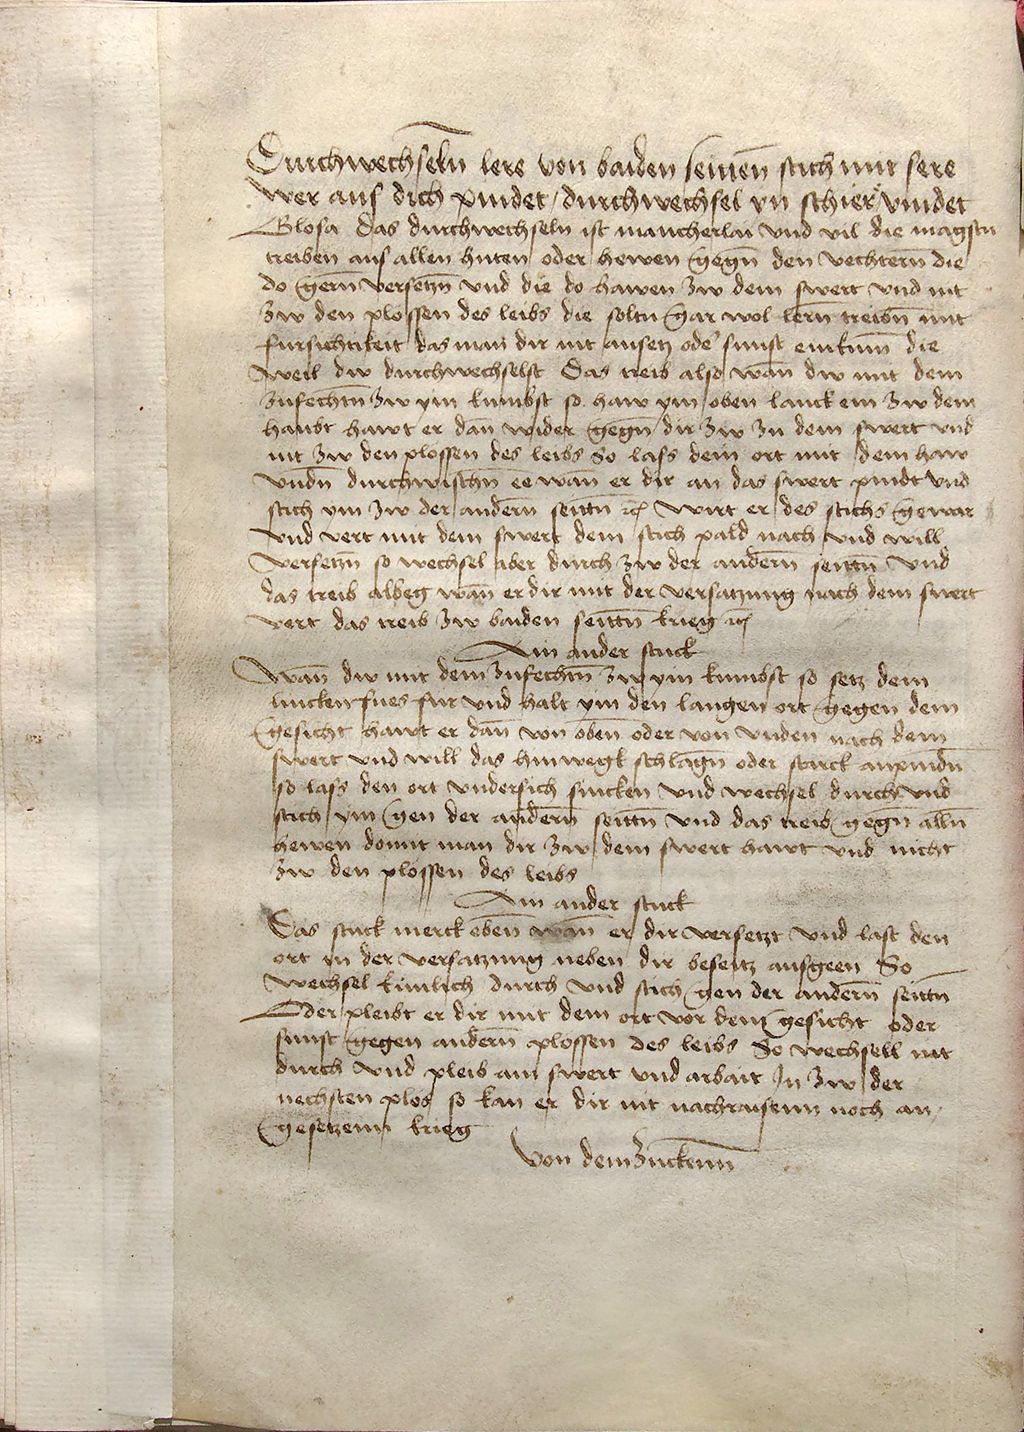 Durchwechseln lere von baiden seittenn stich mit sere
wer auf dich pindet / durchwechsel yn schier vindet
Glosa das durchwechseln ist mancherlai vnd vil die magstu
treiben aus allen hüten oder hewen gegn̄ den vechtern̄ die
do gern̄ versetzn̄ vnd die do hawen zw dem swert vnd nit
zw den plossen des leibs die soltu gar wol lern̄ treibn̄ mit
fursichtikeit das man dir nit ansetz oder sunst einkum̄ die
weil dw durchwechselst Das treib also wan̄ dw mit dem
zufechtn̄ zw ym kumbst so haw ym oben lanck ein zw dem
haubt hawt er dan̄ wider gegn̄ dir zw zu dem swert vnd
nit zw den plossen des leibs So lass dem ort mit dem haw
vndn̄ durchwischn̄ ee wan̄ er dir an das swert pindt vnd
stich ym zw der andern̄ seittn̄ etc wirt er des stichs gewar
vnd vert mit dem swert dem stich pald nach vnd will
versetzn̄ so wechsel aber durch zw der andern̄ seittn̄ vnd
das treib albeg wan̄ er dir mit der versatzung nach dem swert
vert das treib zw baiden seittn̄ krieg etc
Ain ander stuck
Wan̄ dw mit dem zufechtn̄ zw ym kumbst so setz dem
lincken fues fur vnd halt ym den langen ort gegen dem
gesicht hawt er dan̄ von oben̄ oder von vnden nach dem
swert vnd will das hinwegk schlagn̄ oder starck anpindn̄
so lass den ort vndersich sincken vnd wechsel durch vnd
stich ym gen der andern̄ seittn̄ vnd das treib gegn̄ alln̄
hewen domit man dir zw dem swert hawt vnd nicht
zw den plossen des leibs
Ain ander stuck
Das stuck merck eben̄ wan̄ er dir versetzt vnd last den
ort in der versatzung neben dir beseitz ausgeen So
wechsel kunlich durch vnd stich gen der andern̄ seittn̄
Oder pleibt er dir mit dem ort vor dem gesicht oder
sunst gegen andern̄ plossen des leibs So wechsell nit
durch vnd pleib am swert vnd arbait In zw der
nechsten plos so kan er dir nit nachraisenn noch an
gesetzenn krieg
Von dem Zuckenn̄